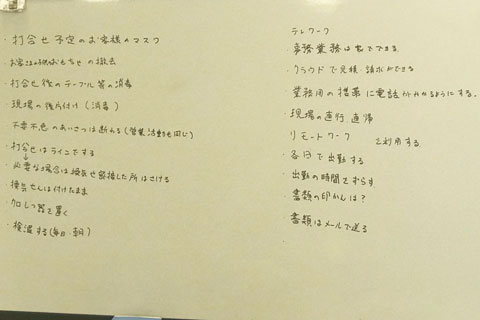 ・打合せ予定のお客様のマスク
・お客様の子供おもちゃの撤去
・打合せ後のテーブル等の消毒
・現場の後片付け（消毒）
・不要不急のあいさつは断わる(営業活動も同じ)
・打合せはラインでする
↓
・必要な場合は換気せ 密接した所はさける
・換気せんは付けたまま
・加しつ器を置く
・検温する(毎日・朝)
テレワーク
・事務業務は家でできる
・クラウドで見積・請求ができる
業務用の携帯に電話がかかるようにする。
・現場の直行 直帰
リモートワーク を利用する
・各日で出勤する
・出勤の時間をずらす
・書類の印かんは？
・書類はメールで送る